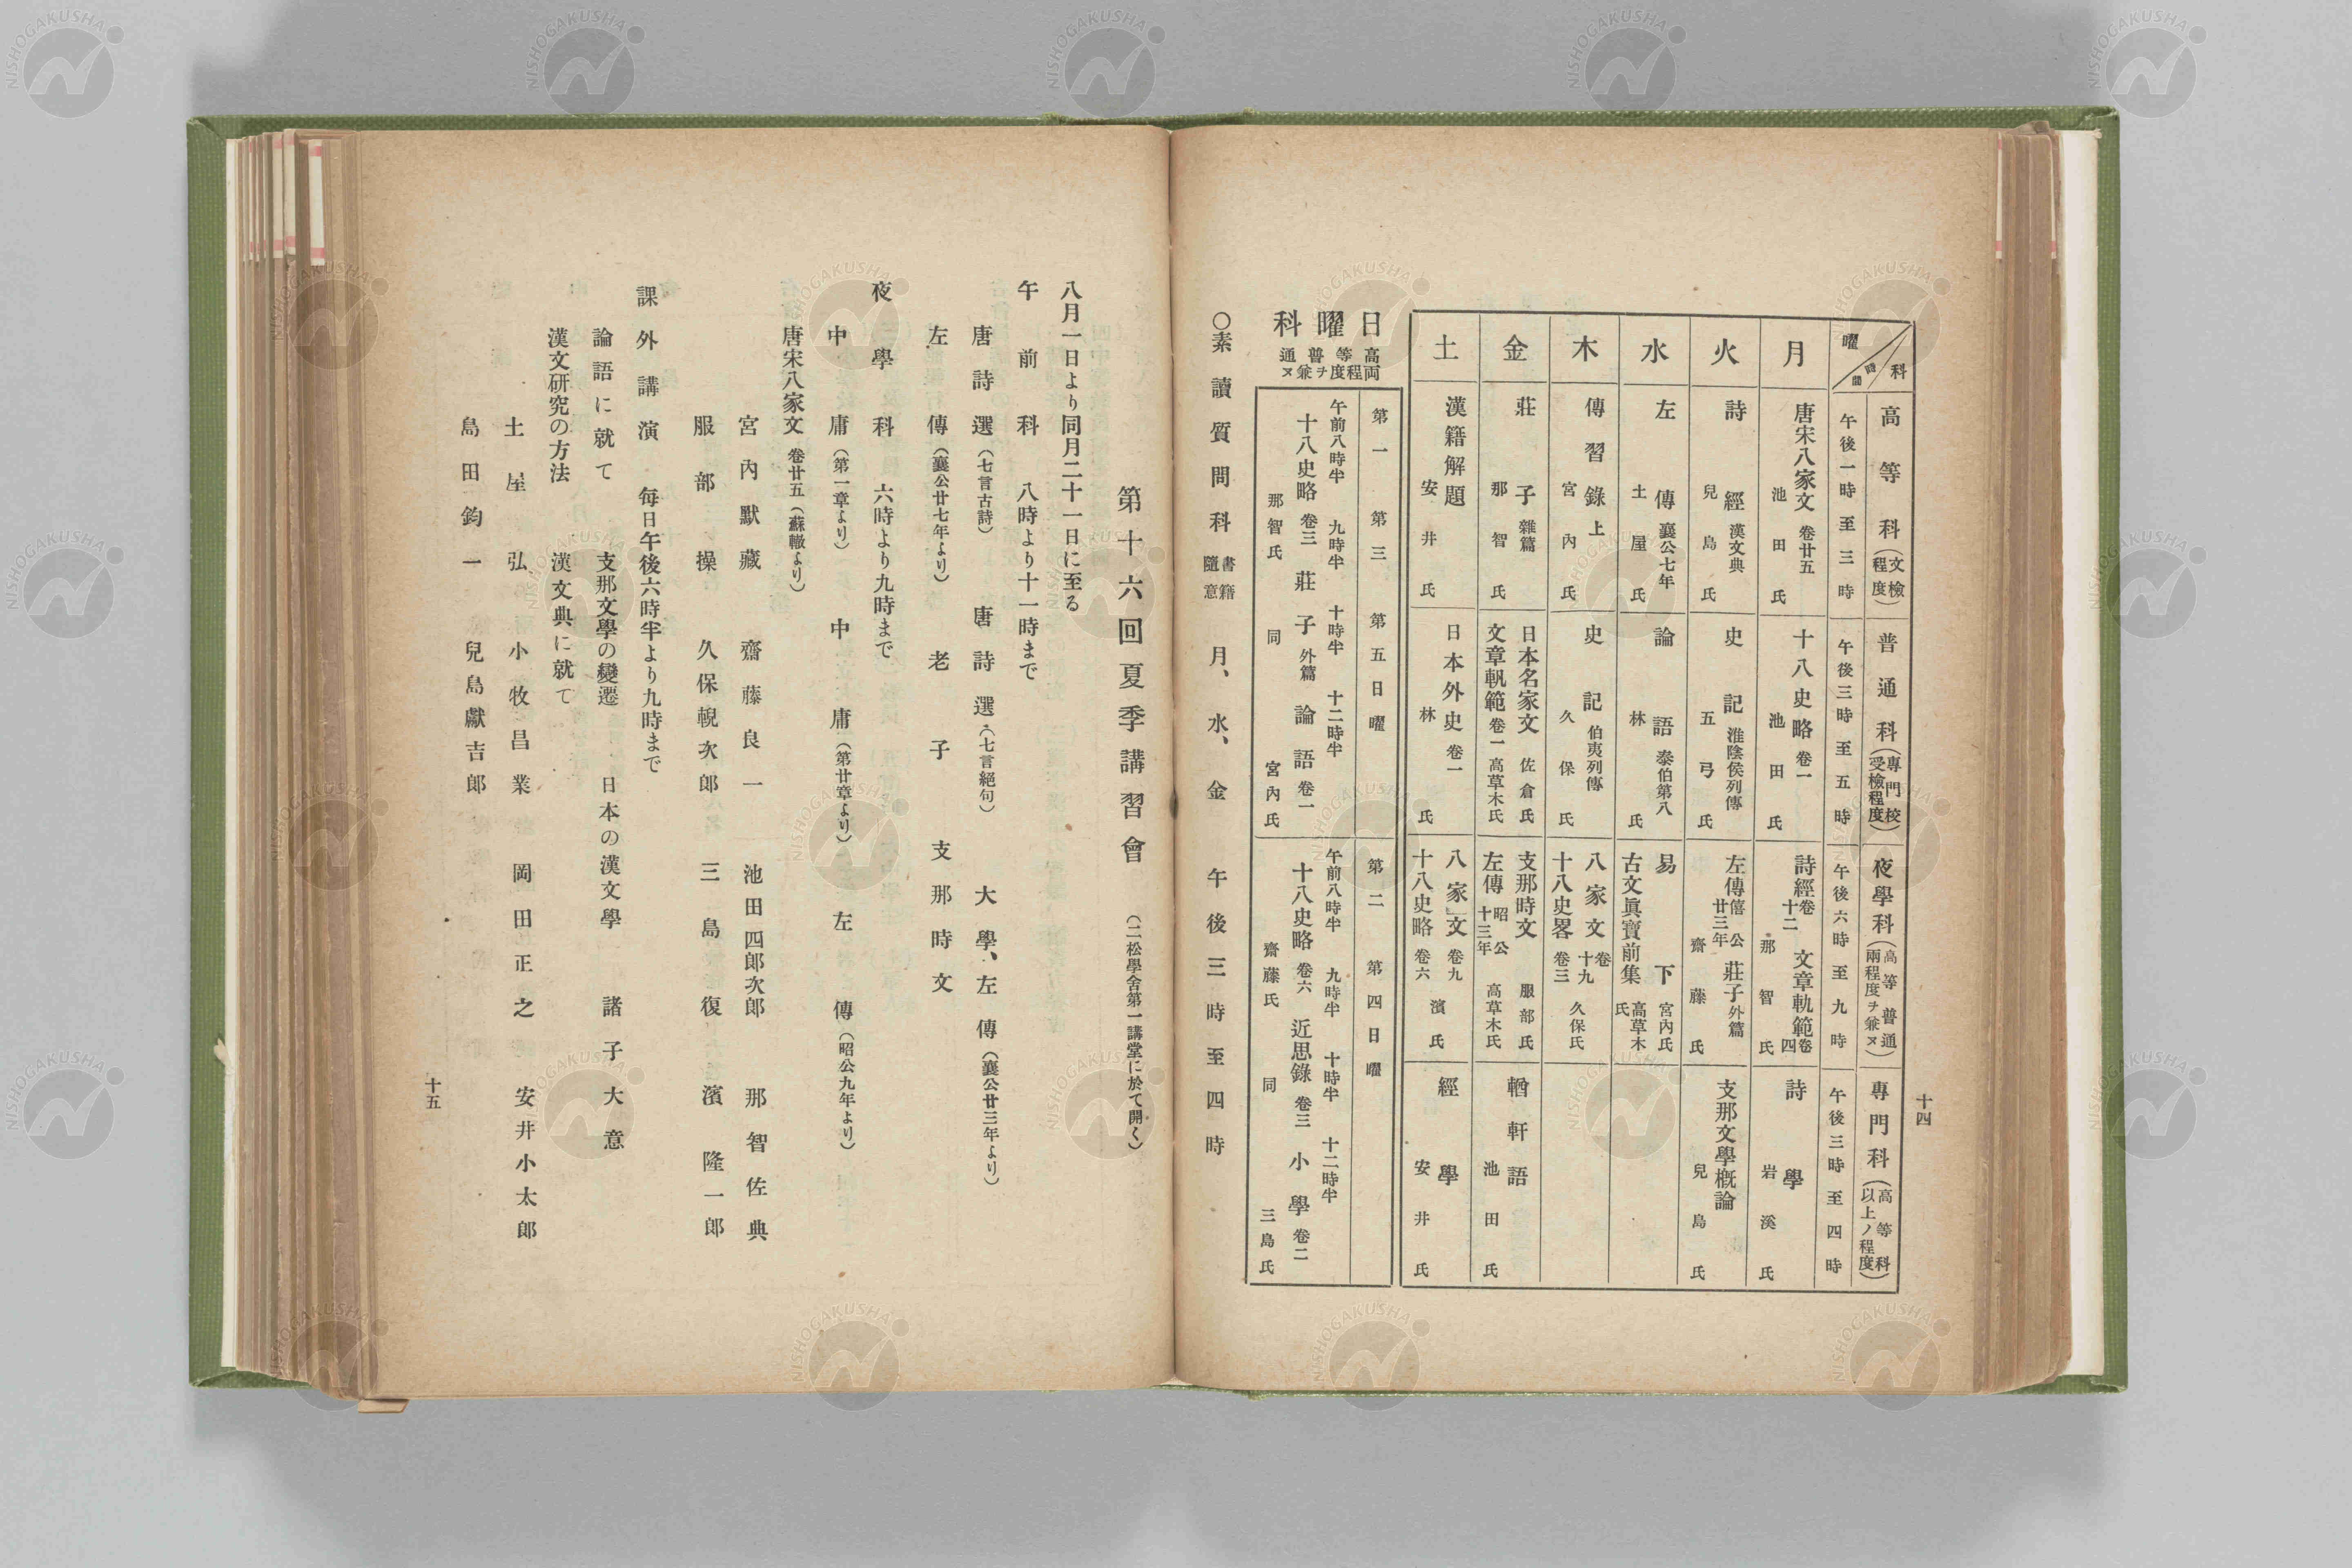 十四
科
時間
曜
高等科(文檢程度)
普通科(專門校受檢程度)
夜學科(高等普通兩程度ヲ兼ヌ)
專門科(高等科以上ノ程度)
午後一時至三時
午後三時至五時
午後六時至九時
午後三時至四時
月
唐宋八家文 卷廿五 池田氏
十八史略 卷一 池田氏
詩經 卷十二 文章軌範 卷四 那智氏
詩學 岩溪氏
火
詩經 漢文典 兒島氏
史記 淮陰侯列傳 五弓氏
左傳 僖公廿三年 莊子 外篇 齋藤氏
支那文學槪論 兒島氏
水
左傳 襄公七年 土屋氏
論語 泰伯第八 林氏
易 下 宮內氏
古文眞寶前集 高草木氏
木
傳習錄 上 宮內氏
史記 伯夷列傳 久保氏
八家文 卷十九
十八史畧 卷三 久保氏
金
莊子 雜篇 那智氏
日本名家文 佐倉氏
文章軌範 卷一 高草木氏
支那時文 服部氏
左傳 昭公十三年 高草木氏
輶軒語 池田氏
土
漢籍解題 安井氏
日本外史 卷一 林氏
八家文 卷九 濱氏
十八史略 卷六
經學 安井氏
日曜科
高等普通兩程度ヲ兼ヌ
第一 第三 第五日曜
午前八時半 九時半 十時半 十二時半
十八史略 卷三 莊子 外篇 論語 卷一
那智氏 同 宮內氏
第二 第四日曜
午前八時半 九時半 十時半 十二時半
十八史略 卷六 近思錄 卷三 小學 卷二
齋藤氏 同 三島氏
〇素讀質問科 書籍隨意 月、水、金 午後三時至四時
第十六回夏季講習會 (二松學舍第一講堂に於て開く)
八月一日より同月二十一日に至る
午前科 八時より十一時まで
唐詩選(七言古詩) 唐詩選(七言絕句) 大學、左傳(襄公廿三年より)
左傳(襄公廿七年より) 老子 支那時文
夜學科 六時より九時まで
中庸(第一章より) 中庸(第廿章より) 左傳(昭公九年より)
唐宋八家文 卷廿五(蘇轍より)
宮內默藏 齋藤良一 池田四郎次郎 那智佐典
服部操 久保輗次郎 三島復 濱隆一郎
課外講演 每日午後六時半より九時まで
論語に就て 支那文學の變遷 日本の漢文學 諸子大意
漢文硏究の方法 漢文典に就て
土屋弘 小牧昌業 岡田正之 安井小太郎
島田鈞一 兒島獻吉郎
十五